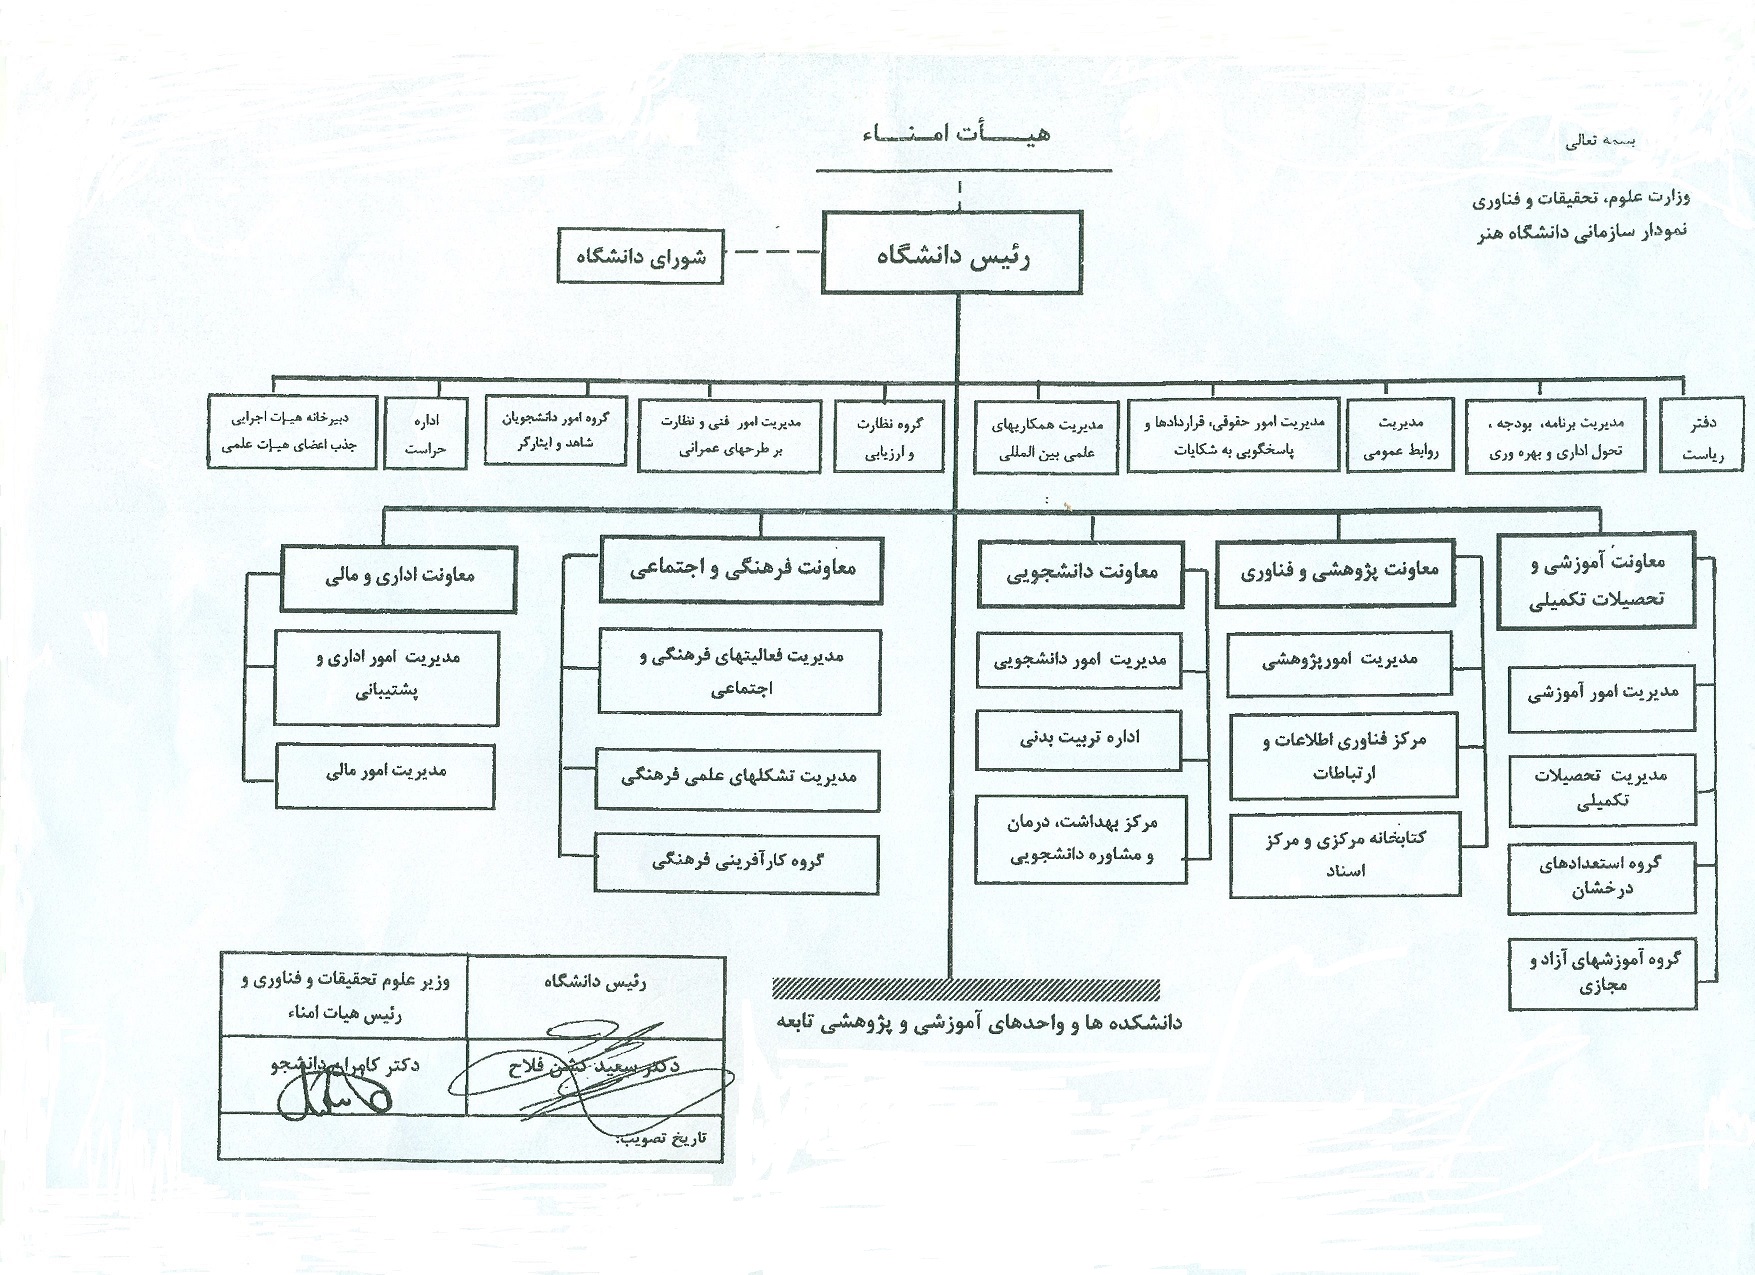 بسمه تعالی
وزارت علوم، تحقیقات و فناوری
نمودار سازمانی دانشگاه هنر
هیـــــأت امـــنـــاء
رئیس دانشگاه
شورای دانشگاه
دفتر
ریاست
مدیریت برنامه، بودجه ،
تحول اداری و بهره وری
مدیریت
روابط عمومی
مدیریت امور حقوقی، قراردادها و
پاسخگویی به شکایات
مدیریت همکاریهای
علمی بین المللی
گروه نظارت
و ارزیابی
مدیریت امور فنی و نظارت
بر طرحهای عمرانی
گروه امور دانشجویان
شاهد و ایثارگر
اداره
حراست
دبیرخانه هیـات اجرایی
جذب اعضای هیـات علمی
معاونت آموزشی و
تحصیلات تکمیلی
مدیریت امور آموزشی
مدیریت تحصیلات
تکمیلی
گروه استعدادهای
درخشان
گروه آموزشهای آزاد و
مجازی
معاونت پژوهشی و فناوری
مدیریت امورپژوهشی
مرکز فناوری اطلاعات و
ارتباطات
کتابخانه مرکزی و مرکز
اسناد
معاونت دانشجویی
مدیریت امور دانشجویی
اداره تربیت بدنی
مرکز بهداشت، درمان
و مشاوره دانشجویی
معاونت فرهنگی و اجتماعی
مدیریت فعالیتهای فرهنگی و
اجتماعی
مدیریت تشکلهای علمی فرهنگی
گروه کارآفرینی فرهنگی
معاونت اداری و مالی
مدیریت امور اداری و
پشتیبانی
مدیریت امور مالی
دانشکده ها و واحدهای آموزشی و پژوهشی تابعه
رئیس دانشگاه
وزیر علوم تحقیقات و فناوری و
رئیس هیات امناء
دکتر سعید کشن فلاح
دکتر کامران دانشجو
تاریخ تصویب: